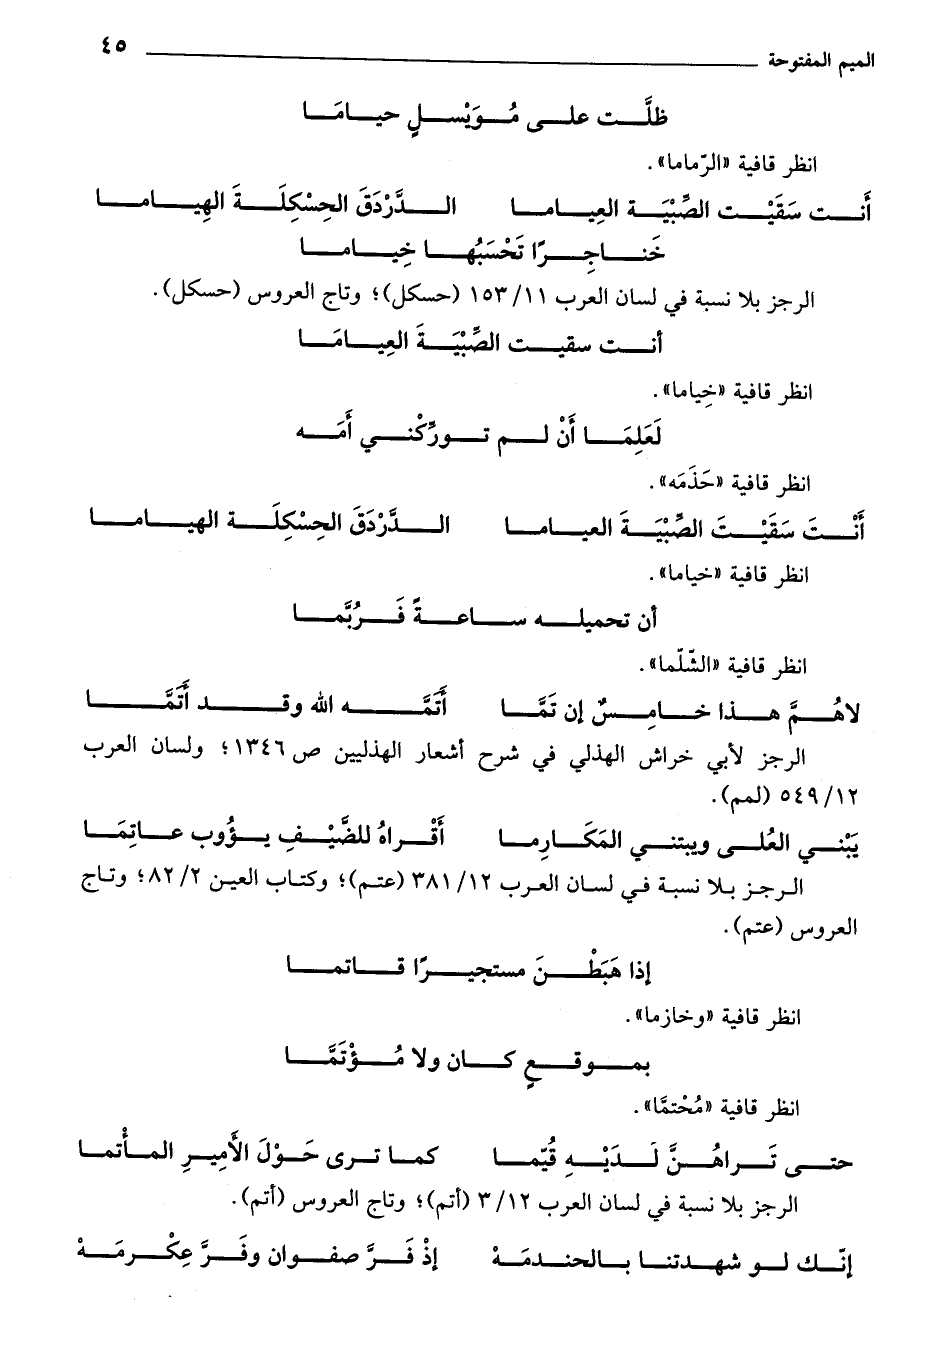 الميم المفتوحة ٤٥
ظلَّت على مُوَيْسلٍ حيامَا
انظر قافية «الرّماما».
أَنت سَقَيْت الصِّبْيَة العِياما الدَّرْدَقَ الحِسْكِلَةَ الهِياما
خَناجِرًا تَحْسَبُها خِياما
الرجز بلا نسبة في لسان العرب ١٥٣/١١ (حسكل)؛ وتاج العروس (حسكل).
أنت سقيت الصِّبْيَةَ العِيامَا
انظر قافية «خِياما».
لَعَلِمَا أَنْ لم تورِّكْني أَمَه
انظر قافية «حَذَمَه».
أَنْتَ سَقَيْتَ الصِّبْيَةَ العياما الدَّرْدَقَ الحِسْكِلَة الهياما
انظر قافية «خياما».
أن تحميله ساعةً فَرُبَّما
انظر قافية «الشّلّما».
لاهُمَّ هذا خامِسٌ إن تَمَّا أَتَمَّه الله وقد أَتَمَّا
الرجز لأبي خراش الهذلي في شرح أشعار الهذليين ص١٣٤٦؛ ولسان العرب
٥٤٩/١٢ (لمم).
يَبْني العُلى ويبتني المَكَارِما أَقْراهُ للضَّيْفِ يؤُوب عاتِمَا
الرجز بلا نسبة في لسان العرب ٣٨١/١٢ (عتم)؛ وكتاب العين ٨٢/٢؛ وتاج
العروس (عتم).
إذا هَبَطْنَ مستجيرًا قاتما
انظر قافية «وخازما».
بموقعٍ كان ولا مُؤْتَمَّا
انظر قافية «مُحْتمَّا».
حتى تَراهُنَّ لَدَيْهِ قُيَّما كما ترى حَوْلَ الأَمِيرِ المأْتما
الرجز بلا نسبة في لسان العرب ٣/١٢ (أتم)؛ وتاج العروس (أتم).
إنّك لو شهدتنا بالحندمَهْ إذْ فَرَّ صفوان وفَرَّ عِكْرمَهْ